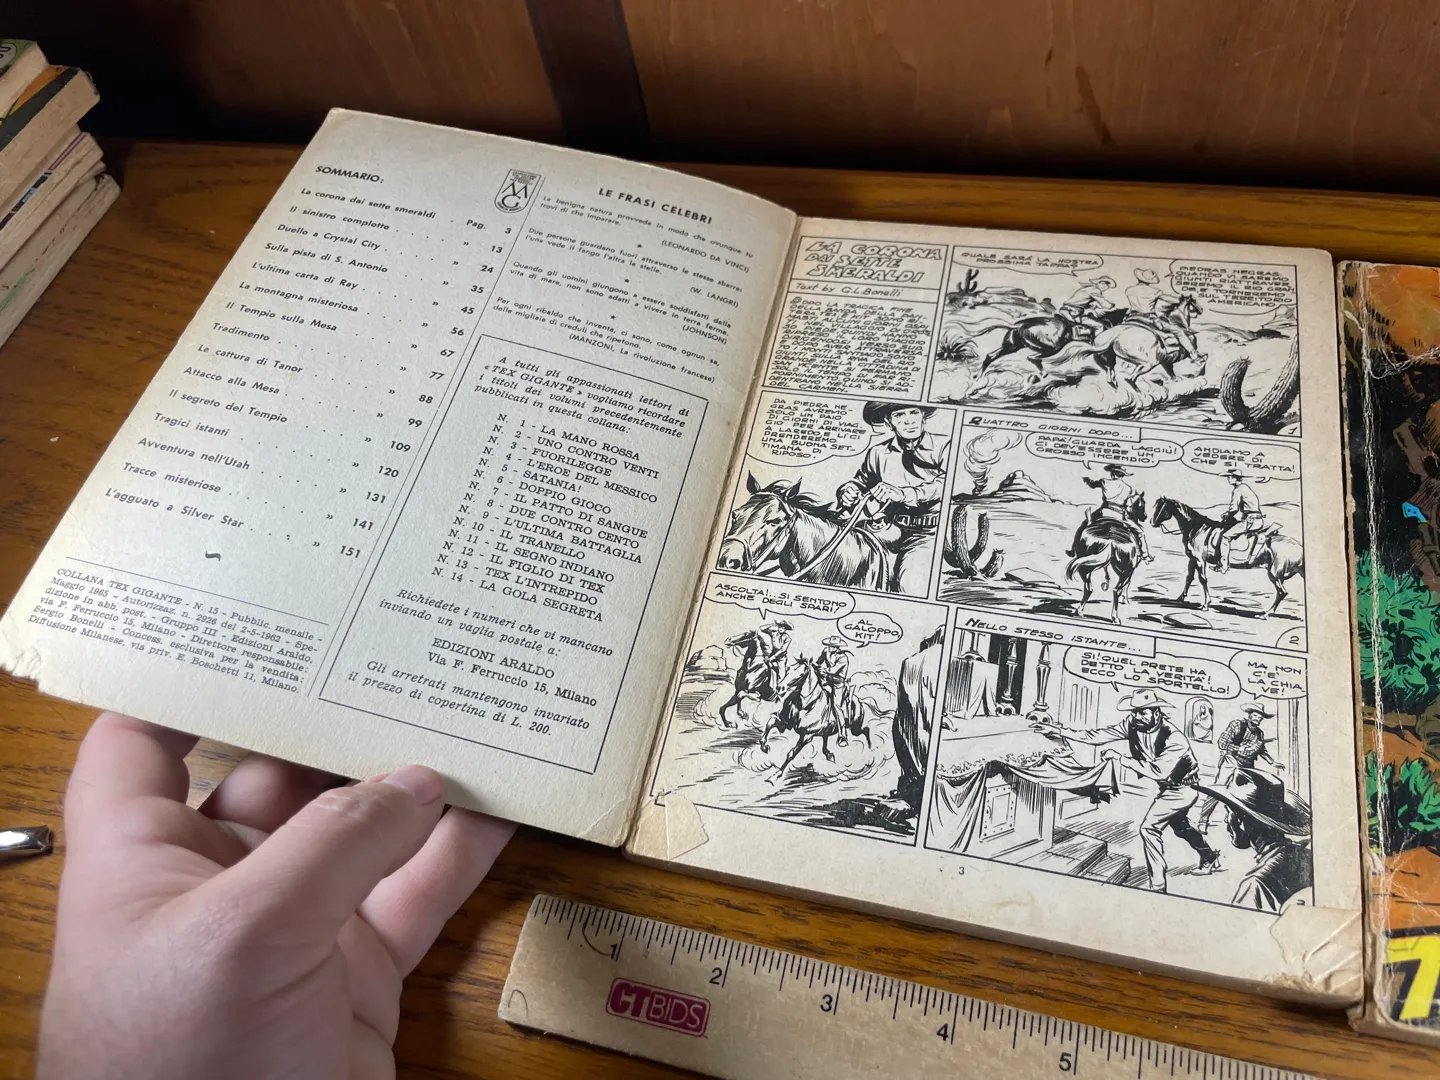 SOMMARIO:
La corona dai sette smeraldi . Pag. 3
Il sinistro complotto . . . . » 13
Duello a Crystal City . . . . » 24
Sulla pista di S. Antonio . . . » 35
L'ultima carta di Ray . . . . » 45
La montagna misteriosa . . . » 56
Il Tempio sulla Mesa . . . . » 67
Tradimento . . . . . . . » 77
La cattura di Tanor . . . . » 88
Attacco alla Mesa . . . . . » 99
Il segreto del Tempio . . . . » 109
Tragici istanti . . . . . . » 120
Avventura nell'Utah . . . . » 131
Tracce misteriose . . . . . » 141
L'agguato a Silver Star . . . » 151
COLLANA TEX GIGANTE - N. 15 - Pubblic. mensile -
Maggio 1965 - Autorizzaz. n. 2926 del 2-5-1962 - Spe-
dizione in abb. post. - Gruppo III - Edizioni Araldo,
via F. Ferruccio 15, Milano - Direttore responsabile:
Sergio Bonelli - Concess. esclusiva per la vendita:
Diffusione Milanese, via priv. E. Boschetti 11, Milano.
MG
LE FRASI CELEBRI
La benigna natura provvede in modo che ovunque tu
trovi di che imparare.
(LEONARDO DA VINCI)
Due persone guardano fuori attraverso le stesse sbarre:
l'una vede il fango l'altra le stelle.
(W. LANGRI)
Quando gli uomini giungono a essere soddisfatti della
vita di mare, non sono adatti a vivere in terra ferma.
(JOHNSON)
Per ogni ribaldo che inventa, ci sono, come ognun sa,
delle migliaia di creduli che ripetono.
(MANZONI, La rivoluzione francese)
A tutti gli appassionati lettori di
« TEX GIGANTE » vogliamo ricordare
i titoli dei volumi precedentemente
pubblicati in questa collana:
N. 1 - LA MANO ROSSA
N. 2 - UNO CONTRO VENTI
N. 3 - FUORILEGGE
N. 4 - L'EROE DEL MESSICO
N. 5 - SATANIA!
N. 6 - DOPPIO GIOCO
N. 7 - IL PATTO DI SANGUE
N. 8 - DUE CONTRO CENTO
N. 9 - L'ULTIMA BATTAGLIA
N. 10 - IL TRANELLO
N. 11 - IL SEGNO INDIANO
N. 12 - IL FIGLIO DI TEX
N. 13 - TEX L'INTREPIDO
N. 14 - LA GOLA SEGRETA
Richiedete i numeri che vi mancano
inviando un vaglia postale a:
EDIZIONI ARALDO
Via F. Ferruccio 15, Milano
Gli arretrati mantengono invariato
il prezzo di copertina di L. 200.
LA CORONA
DAI SETTE
SMERALDI
Text by G.L. Bonelli
DOPO LA TRAGICA FINE
DELLA BANDA DELLA PAN-
NEL VILLAGGIO
IL LORO VIAGGIO
SOLO
DENTRANO NELLA SIERRA
DEL CARMEN
QUALE SARÀ LA NOSTRA
PROSSIMA TAPPA?
PIEDRAS NEGRAS.
QUANDO VI SAREMO
GIUNTI RIATTRAVER-
SEREMO IL RIO GRAN-
DE E TORNEREMO
SUL TERRITORIO
AMERICANO.
1
DA PIEDRA NE-
GRAS AVREMO
SOLO UN PAIO
DI GIORNI DI VIAG-
GIO PER ARRIVARE
A LAREDO E LÌ CI
PRENDEREMO
UNA BUONA SET-
TIMANA DI
RIPOSO.
QUATTRO GIORNI DOPO...
PAPÀ! GUARDA LAGGIÙ!
CI DEV'ESSERE UN
GROSSO INCENDIO!
ANDIAMO A
VEDERE DI
CHE SI TRATTA!
2
ASCOLTA!.. SI SENTONO
ANCHE DEGLI SPARI!
AL
GALOPPO,
KIT!
NELLO STESSO ISTANTE...
SI! QUEL PRETE HA
DETTO LA VERITÀ!
ECCO LO SPORTELLO!
MA NON
C'È
LA CHIA-
VE!
3
3
1 2 3 4 5
CTBIDS
7